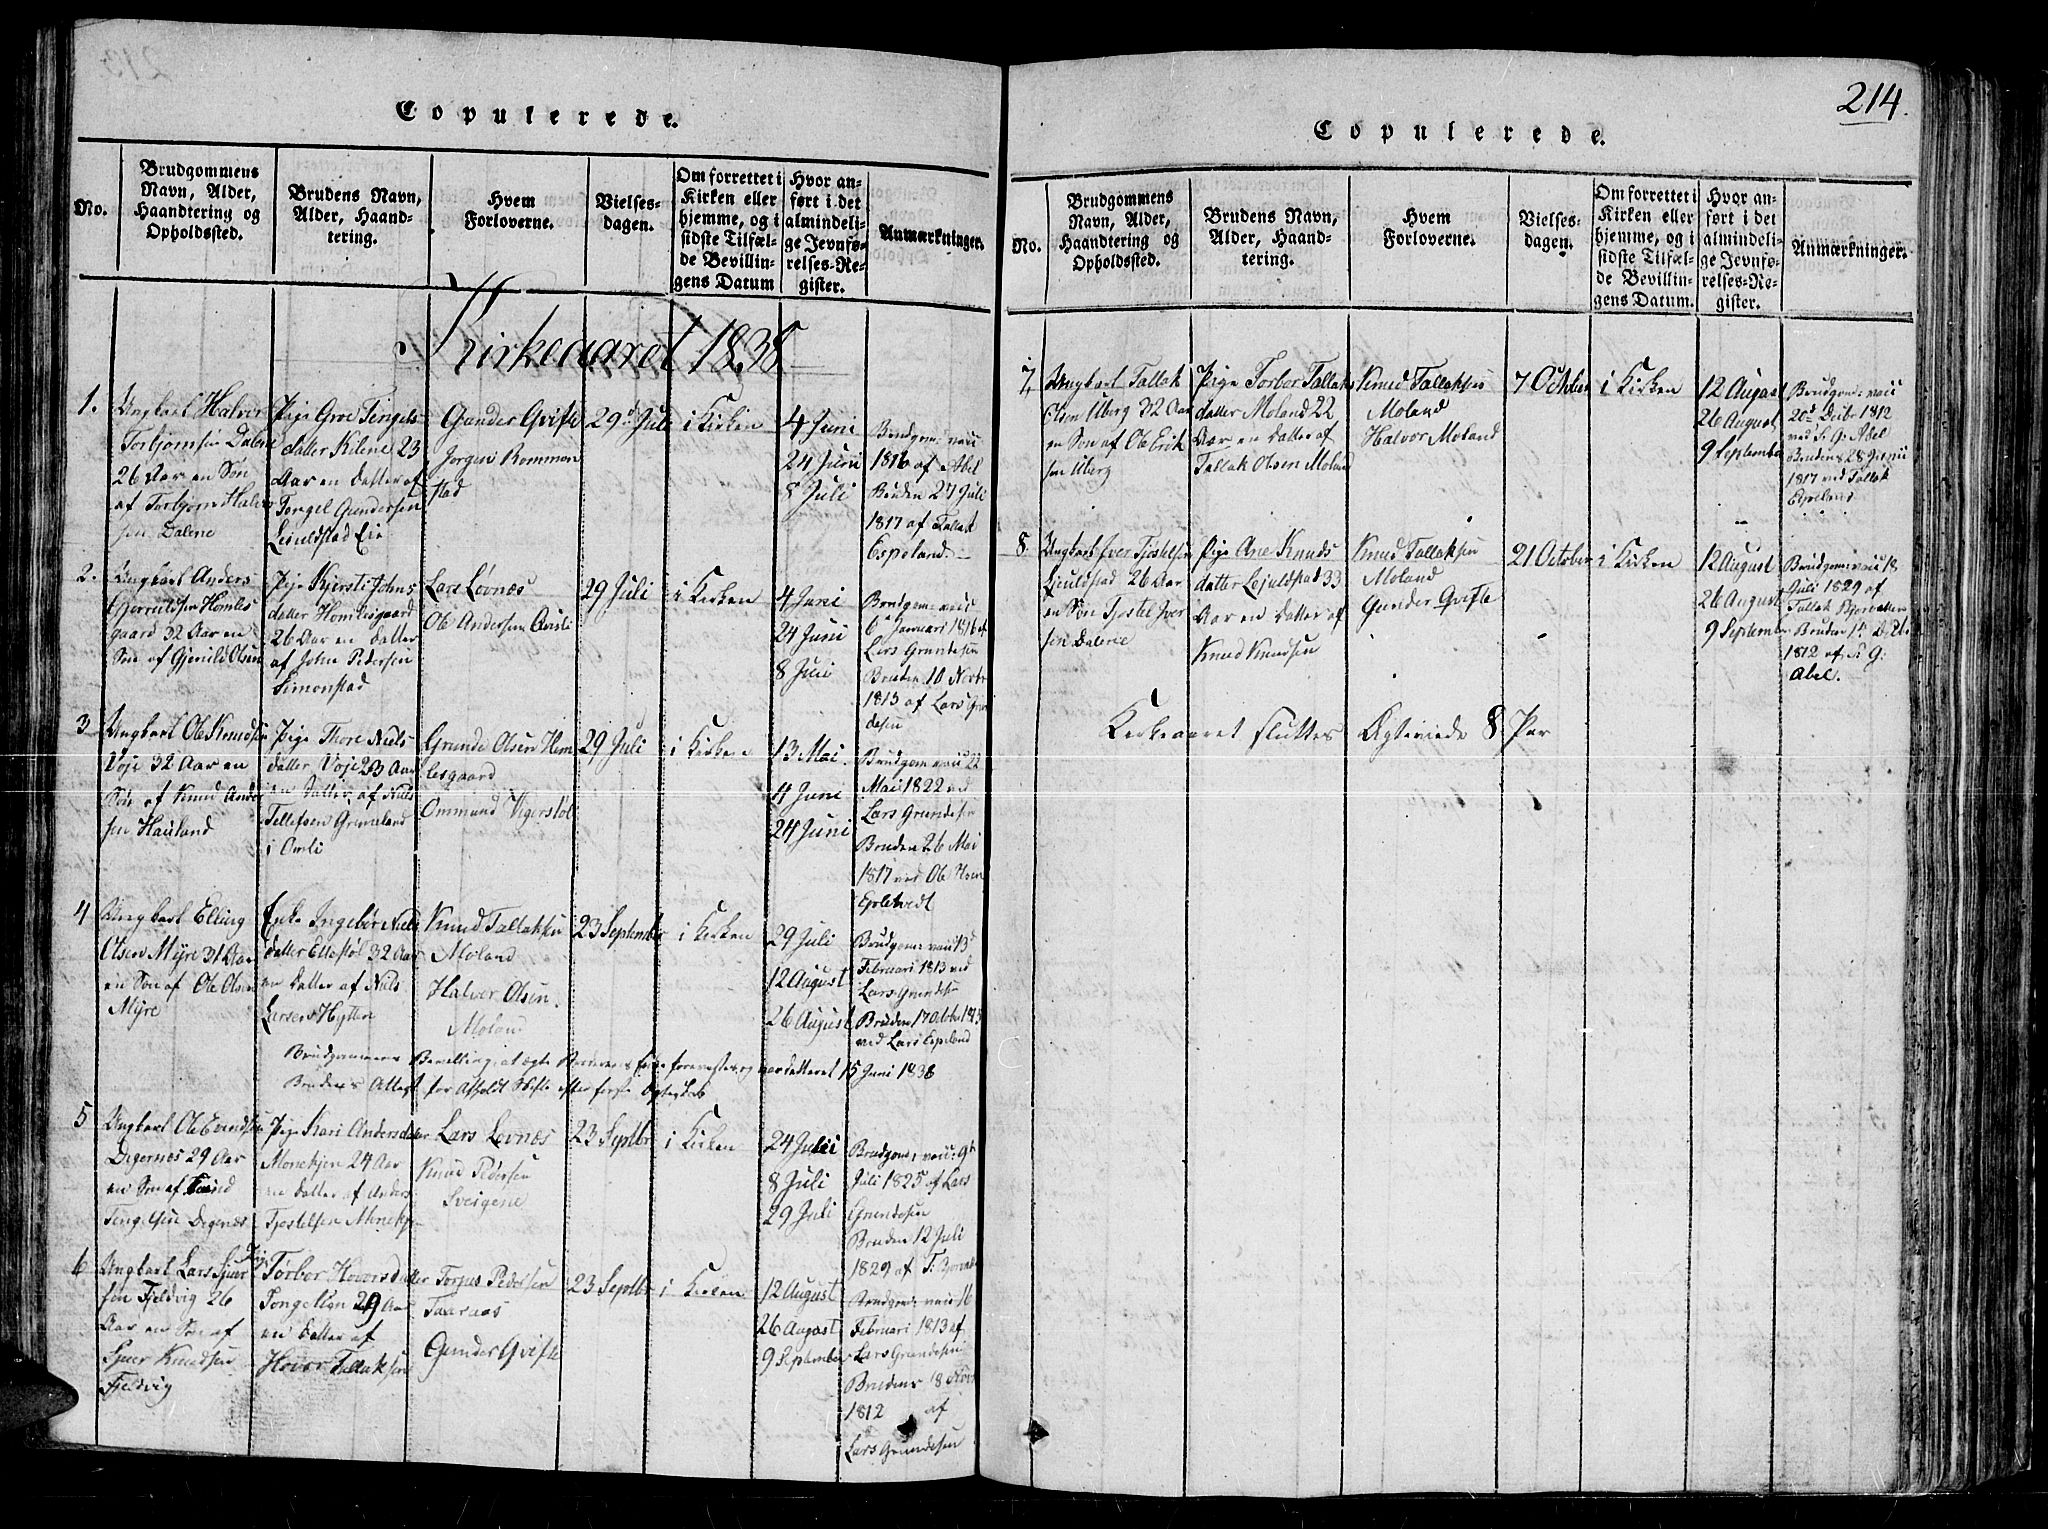 Copulerede.
No.
Brudgommens
Navn, Alder,
Haandtering og
Opholdssted.
Brudens Navn,
Alder, Haand-
tering.
Hvem
Forloverne.
Vielses-
dagen.
Om forrettet i
Kirken eller
hjemme, og i
sidste Tilfæl-
de Bevillin-
gens Datum
Hvor an-
ført i det
almindeli-
ge Jevnfø-
relses-Re-
gister.
Anmærkninger.
Kirkeaaret 1838
1.
Ungkarl Halvor
Torbjornsen Dalene
26 Aar en Søn
af Torbjorn Halvor
sen Dalene
Pige Groe Tengels
datter Kilene 23
Aar en Datter af
Tengel Gundersen
Leiuldstad Eie
Gunder Gvifte
Jorgen Rommon
stad
29 Juli
i Kirken
4 Juni
24 Juni
8 Juli
Brudgom: vacc
1816 af Abel
Bruden 27 Juli
1817 af Tallak
Espeland
2.
Ungkarl Anders
Gjerruldsen Homles
gaard 32 Aar en
Søn af Gjeruld Olsen
Pige Kjersti Johns
datter Homlesgaard
26 Aar en Datter
af John Pedersen
Simonstad
Lars Løvnæs
Ole Andersen
29 Juli
i Kirken
4 Juni
24 Juni
8 Juli
Brudgom: vacc
6 Januari 1816 af
Lars Grundesen
Bruden 10 Novbr
1813 af Lars Grun
desen
3
Ungkarl Ole Knudsen
Voje 32 Aar en
Søn af Knud Ander
sen Hauland
Pige Thore Niels
datter Voje 23 Aar
en Datter af Niels
Tellefsen Grimeland
i Omli
Grunde Olsen Hom
lesgaard
Ommund Vigerstøl
29 Juli
i Kirken
13 Mai
4 Juni
24 Juni
Brudgom vacc 22
Mai 1822 ved
Lars Grundesen
Bruden 26 Mai
1817 ved Ole
4
Ungkarl Elling
Olsen Mÿre 31 Aar
en Søn af Ole Olsen
Mÿre
Enke Ingebor Niels
datter Ettestøl 32 Aar
en Datter af Niels
Larsen Hytten
Knud Tallaksen
Moland
Halvor Olsen
Moland
23 September
i Kirken
29 Juli
12 August
26 August
Brudgom: vacc 13
Februari 1813 ved
Lars Grundesen
Bruden 17 Octbr 1813
ved Lars Espeland
Brudgommens Bevilling at ægte
15 Juni 1838
Brudens Attest for Afholdt Skifte efter første Ægteskab
5
Ungkarl Ole Evindsen
Degernes 29 Aar
en Søn af Evind
Tengelsen Degenæs
Pige Kari Andersdatter
Monekjen 24 Aar
en Datter af Anders
Tjostelsen Monekj
Lars Lovnæs
Knud Pedersen
Sveigene
23 Septbr
i Kirken
24 Juni
8 Juli
29 Juli
Brudgom: vacc: 9
Juli 1825 af Lars
Grundesen
Bruden 12 Juli
1829 af T. Bjorvatn
6
Ungkarl Lars Sjuer
sen Fjeldvig 26
Aar en Søn af
Sjuer Knudsen
Fjeldvig
Pige
Tørbor Hovorsdatter
Tongelløn 29 Aar
en Datter af
Hovor Tallaksen
Torjus Pedersen
Taarnæs
Gunder Gvifte
23 Septbr
i Kirken
12 August
26 August
9 September
Brudgom: vacc 16
Februari 1813 af
Lars Grundesen
Brudens 8 Novr
1812 af
Lars Grundesen
214.
Copulerede.
No.
Brudgommens
Navn, Alder,
Haandtering og
Opholdssted.
Brudens Navn,
Alder, Haand-
tering.
Hvem
Forloverne.
Vielses-
dagen.
Om forrettet i
Kirken eller
hjemme, og i
sidste Tilfæl-
de Bevillin-
gens Datum.
Hvor an-
ført i det
almindeli-
ge Jevnfø-
relses-Re-
gister.
Anmærkninger.
7,
Ungkarl Tallak
Olsen Uberg 32 Aar
en Søn af Ole Erik
sen Uberg
Pige Torbor Tallaks
datter Moland 22
Aar en Datter af
Tallak Olsen Moland
Knud Tallaksen
Moland
Halvor Moland
7 October
i Kirken
12 August
26 August
9 September
Brudgom: vacc
20d Decbr 1812
ved S. G. Abel
Brudens 28 Junii
1817 ved Tallak
Espeland
8.
Ungkarl Iver Tjostelsen
Ljeuldstad 26 Aar
en Søn Tjostel Iver
sen Dalene
Pige Ane Knuds
datter Lejuldstad 33
Aar en Datter af
Knud Knudsen
Knud Tallaksen
Moland
Gunder Gvifte
21 October
i Kirken
12 August
26 August
9 Septembr
Brudgom: vacc 18
Juli 1829 af
Tallak Bjorvatten
Bruden 1 Decbr
1812 af S. G.
Abel.
Kirkeaaret sluttes Ægteviede 8 Par